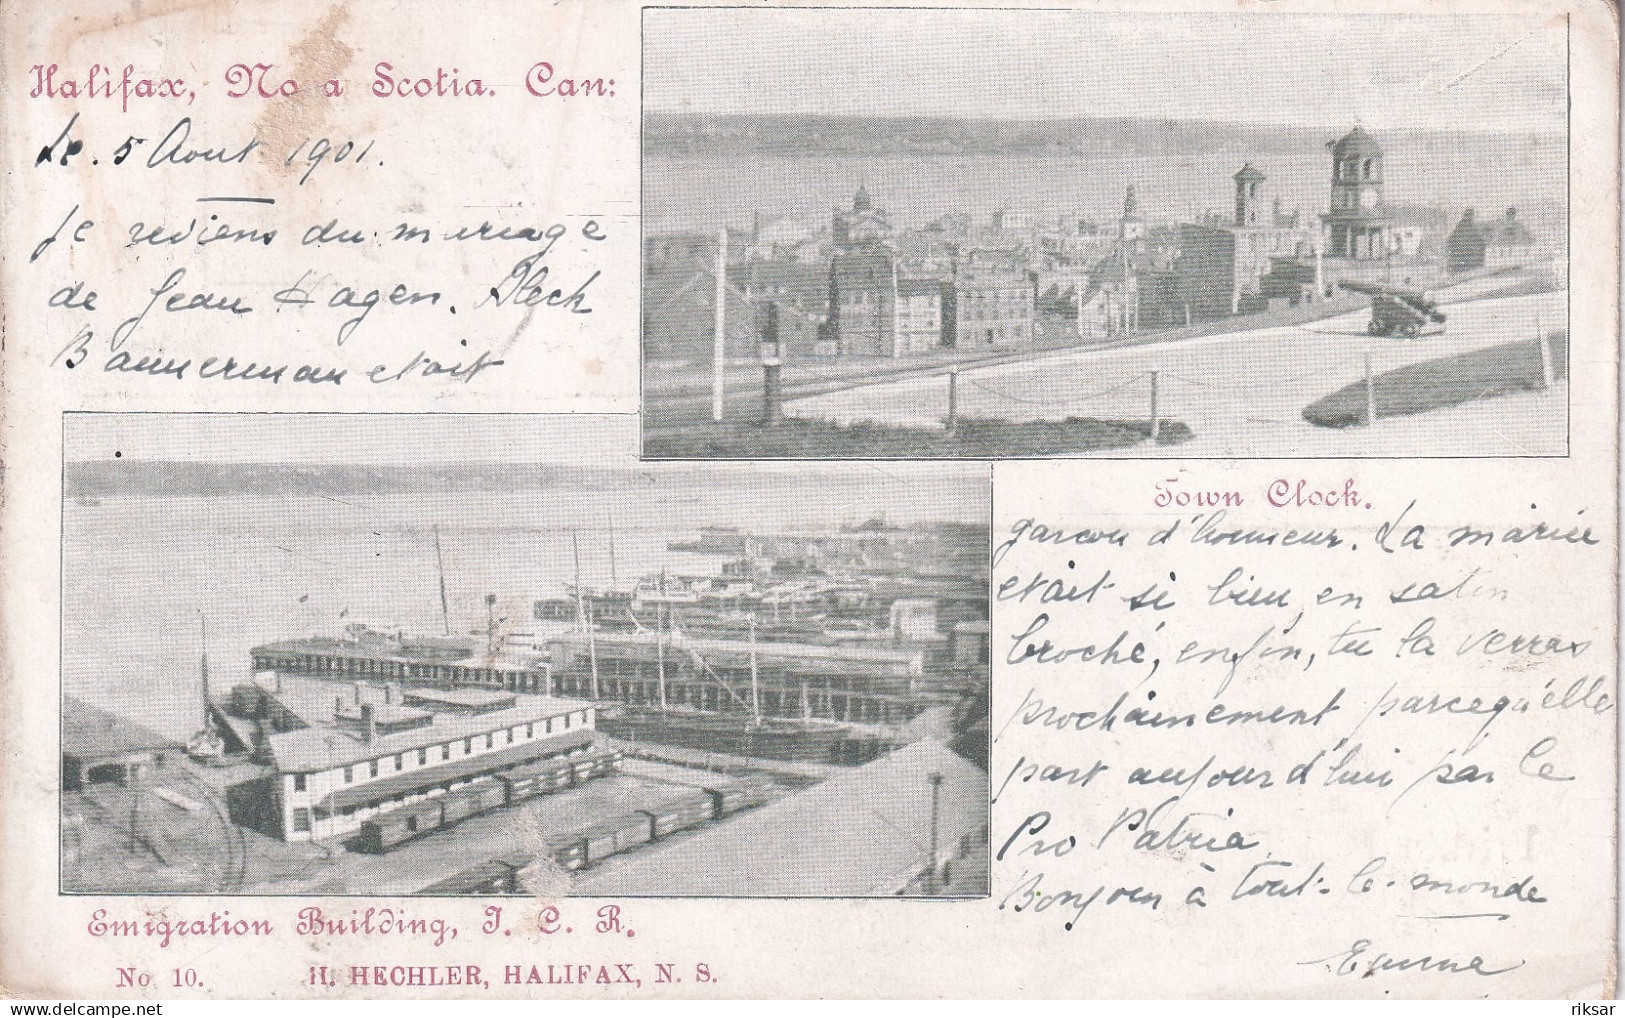 Halifax, No a Scotia. Can:
Le. 5 Aout 1901.
Je reviens du mariage
de Jean Hagen. Alech
Bannerman etait
Town Clock.
garcon d'honneur. La mariée
etait si bien, en satin
broché, enfin, tu la verras
prochainement parcequ'elle
part aujourd'hui par le
Pro Patria.
Bonjour à tout-le-monde
Emigration Building, I. C. R.
No. 10. H. HECHLER, HALIFAX, N. S.
riksar